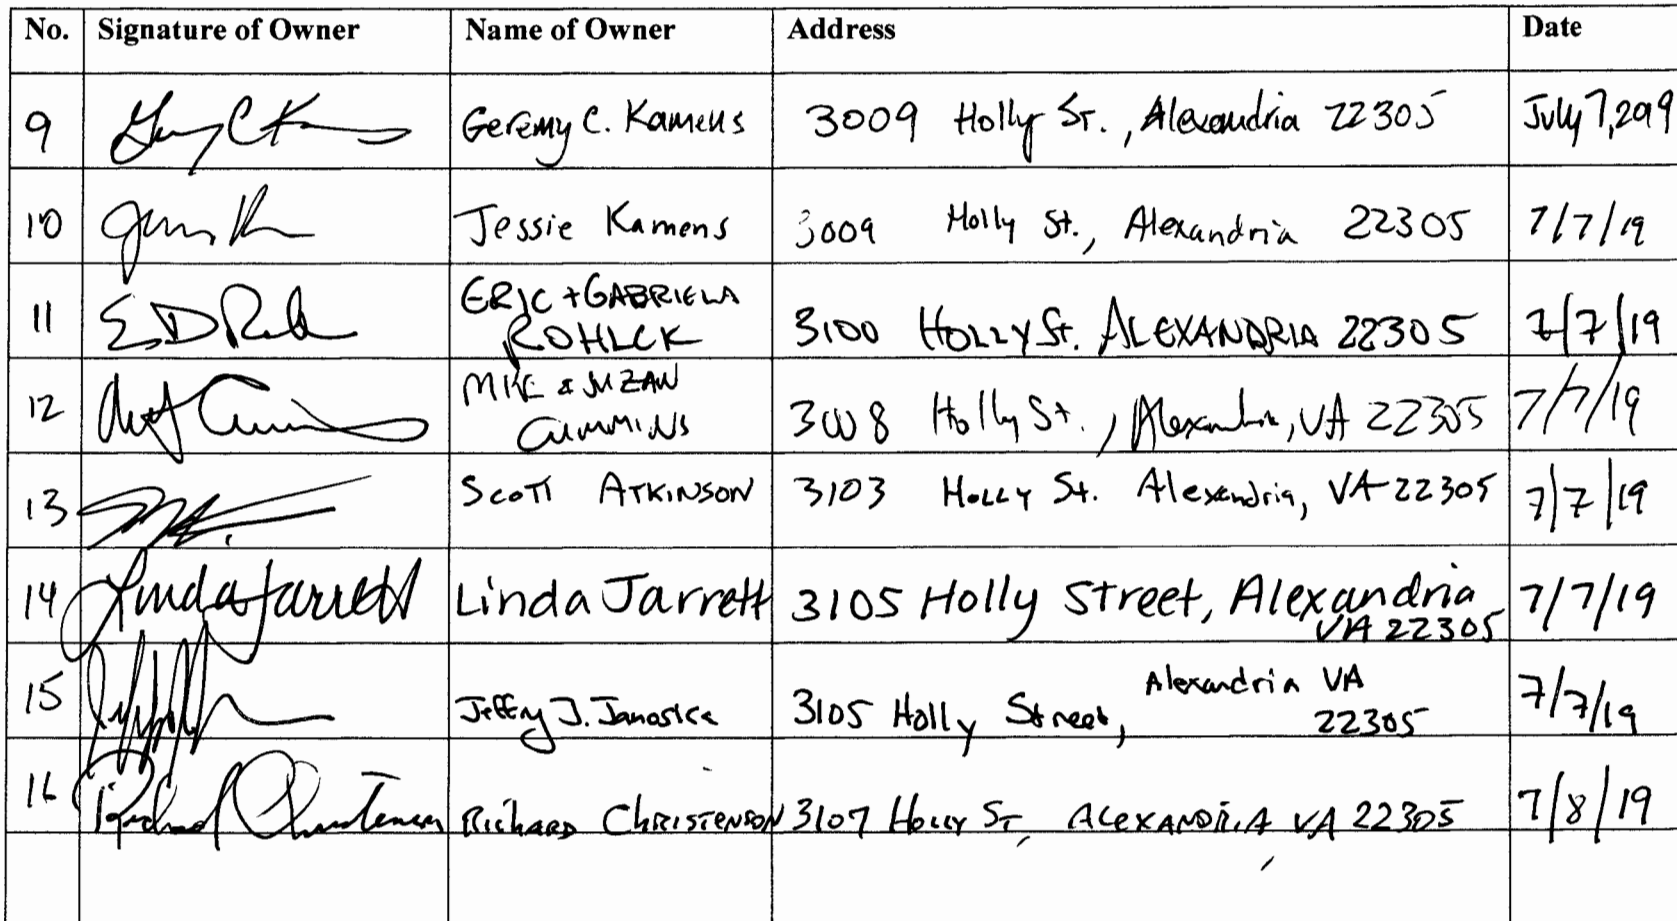 No. Signature of Owner Name of Owner Address Date
9 Geremy C. Kamens 3009 Holly St., Alexandria 22305 July 7, 2019
10 Jessie Kamens 3009 Holly St., Alexandria 22305 7/7/19
ERIC + GABRIELA
11 ROHLCK 3100 HOLLY St. ALEXANDRIA 22305 7/7/19
MIKE & SUZAN
12 CUMMINS 3008 Holly St., Alexandria, VA 22305 7/7/19
13 SCOTT ATKINSON 3103 HOLLY St. Alexandria, VA 22305 7/7/19
14 Linda Jarrett Linda Jarrett 3105 Holly Street, Alexandria 7/7/19
VA 22305
Alexandria VA
15 Jeffry J. 3105 Holly Street, 22305 7/7/19
16 Richard Christenson RICHARD CHRISTENSON 3107 HOLLY ST, ALEXANDRIA, VA 22305 7/8/19